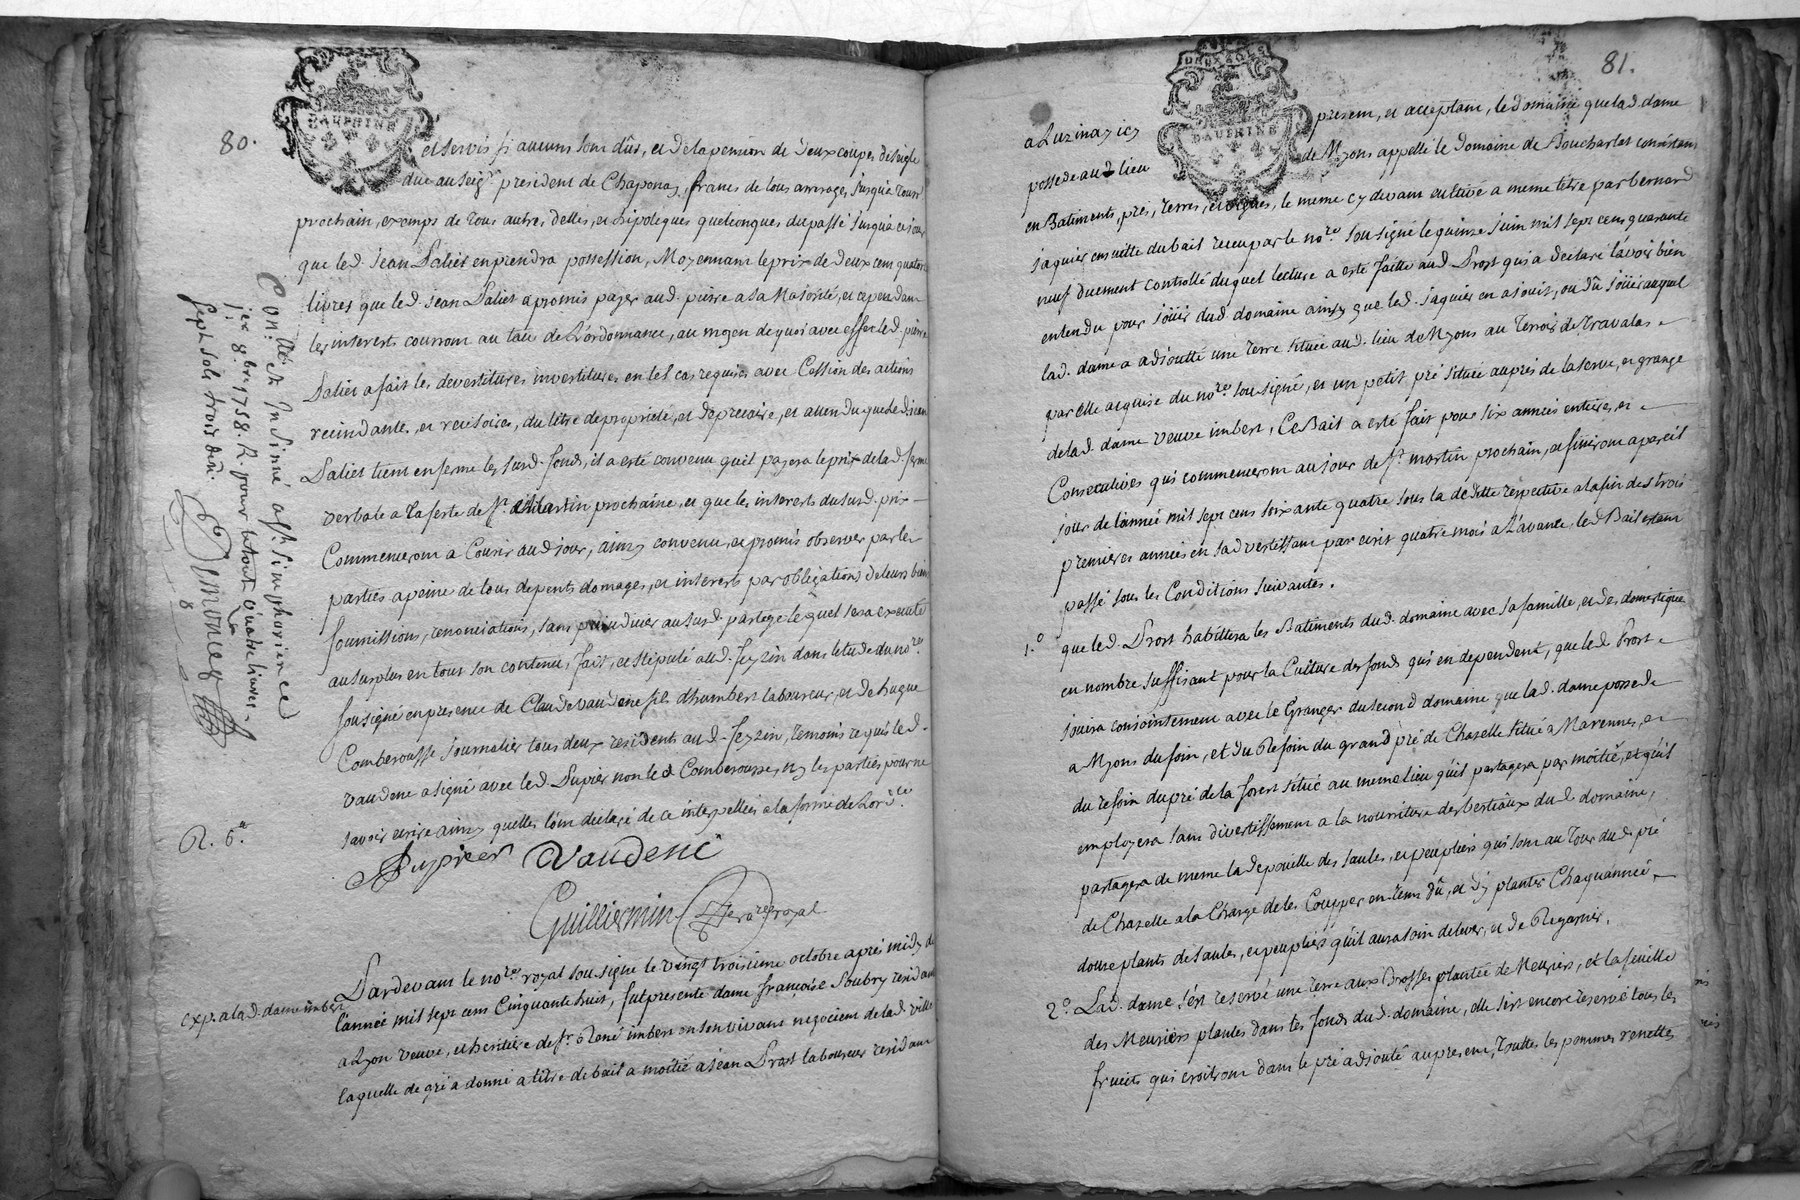 80.
DAUPHINE
et servis si aucuns sont dûs, et de la pension de deux coupes de seigle
due au seigr. president de Chaponay, francs de tous arrerages jusqu'a tous.
prochain, exempts de tous autres dettes, et hipoteques quelconques du passé jusqu'a ce jour
que led. jean Paliet en prendra possession, Moyennant le prix de deux cent quatorze
livres que led. jean Paliet a promis payer aud. pierre a sa Majorité, et cependant
les interets courront au taux de L'ordonnance, au moyen de quoi avec effet led. pierre
Paliet a fait les devestitures investitures en tel cas requises avec Cession des actions
recindante, et recisoire, du titre de proprieté, et de precaire, et attendu que led. jean
Paliet tient en ferme les susd. fonds, il a esté convenu qu'il payera le prix de lad. ferme
verbale a la feste de St. Martin prochaine, et que les interets du susd. prix
Commenceront a Courir aud. jour, ainsy convenu, et promis observer par les
parties a peine de tous depents domages, et interets par obligations de leurs biens
soumissions, renonciations, sans prejudicier au susd. partage lequel sera executé
au surplus en tout son contenu, fait, et stipulé aud. feyzin dans letude du nore.
sousigné en presence de Claude vaudene fils d'humbert laboureur, et de hugue
Comberousse journalier tous deux residents aud. feyzin, temoins requis led.
vaudene a signé avec led. Dupier non led Comberousse, ny les parties pour ne
savoir ecrire ainsy quelles l'ont declaré de ce interpellés a la forme de Lorde.
Dupier vaudene
Guilliermin nore royal
Con.lé et Insinué a St. Simphorien ce
1er 8.bre 1758. R. pour le tout quatre livres
sept sols trois d.
Demoncey
R. 6.s
exp. a lad. dame imbert
Pardevant le nore. royal sousigné le vingt troisieme octobre aprés midy de
l'année mil sept cens Cinquante huit, fut presente dame françoise Soubry residant
a Lyon veuve, et heritiere de sr. René imbert en son vivant negocient de lad. ville
laquelle de gré a donné a titre de bail a moitié a jean Prost laboureur residant
81.
DEUX SOLS
DAUPHINE
a Luzinay icy present, et acceptant, le domaine que lad. dame
possede aud lieu de Myons appellé le domaine de Boucharlat consistant
en Batiments, prés, terres, et vignes, le meme cy devant cultivé a meme titre par bernard
jaquier ensuitte du bail receu par le nore. sousigné le quinze juin mil sept cens quarante
neuf duement controllé duquel lecture a esté faitte aud Prost qui a declaré l'avoir bien
entendu pour jöüir dud. domaine ainsy que led. jaquier en a joüit, ou dû joüir auquel
lad. dame a adjoutté une terre située aud. lieu de Myons au terroir de travalas
par elle acquise du nore. sousigné, et un petit pré située auprés de la serve, et grange
de lad. dame veuve imbert, Ce Bail a esté fait pour six années entieres, et
Consecutives qui commenceront au jour de St. martin prochain, et finiront a pareil
jour de l'année mil sept cens soixante quatre sous la deditte respective a la fin des trois
premieres années en s'advertissant par ecrit quatre mois a l'avance, led Bail etant
passé sous les Conditions suivantes.
1.° que led. Prost habittera les Batiments dud. domaine avec sa famille, et des domestiques
en nombre suffisant pour la Culture des fonds qui en dependent, que led Prost
jouira conjointement avec le Granger du second domaine que lad. dame possede
a Myons du foin, et du Refoin du grand pré de Chazelle situé a Marennes, et
du refoin du pré de la forest situé au meme lieu qu'il partagera par moitié, et qu'il
employera sans divertissement a la nourriture des bestiaux dud. domaine,
partagera de meme la depouille des saules, et peupliers qui sont au tour dud. pré
de Chazelle a la Charge de les Coupper en tems dû, et d'y planter Chaquannée
douze plants de saules, et peupliers qu'il aura soin delever, et de Regarnir.
2.° Lad. dame s'est reservé une terre aux Brosses plantée de Meuriers, et la feuille
des Meuriers plantés dans les fonds dud. domaine, elle s'est encore reservé tous les
fruits qui croitront dans le pré adjouté au present, touttes les pommes renettes